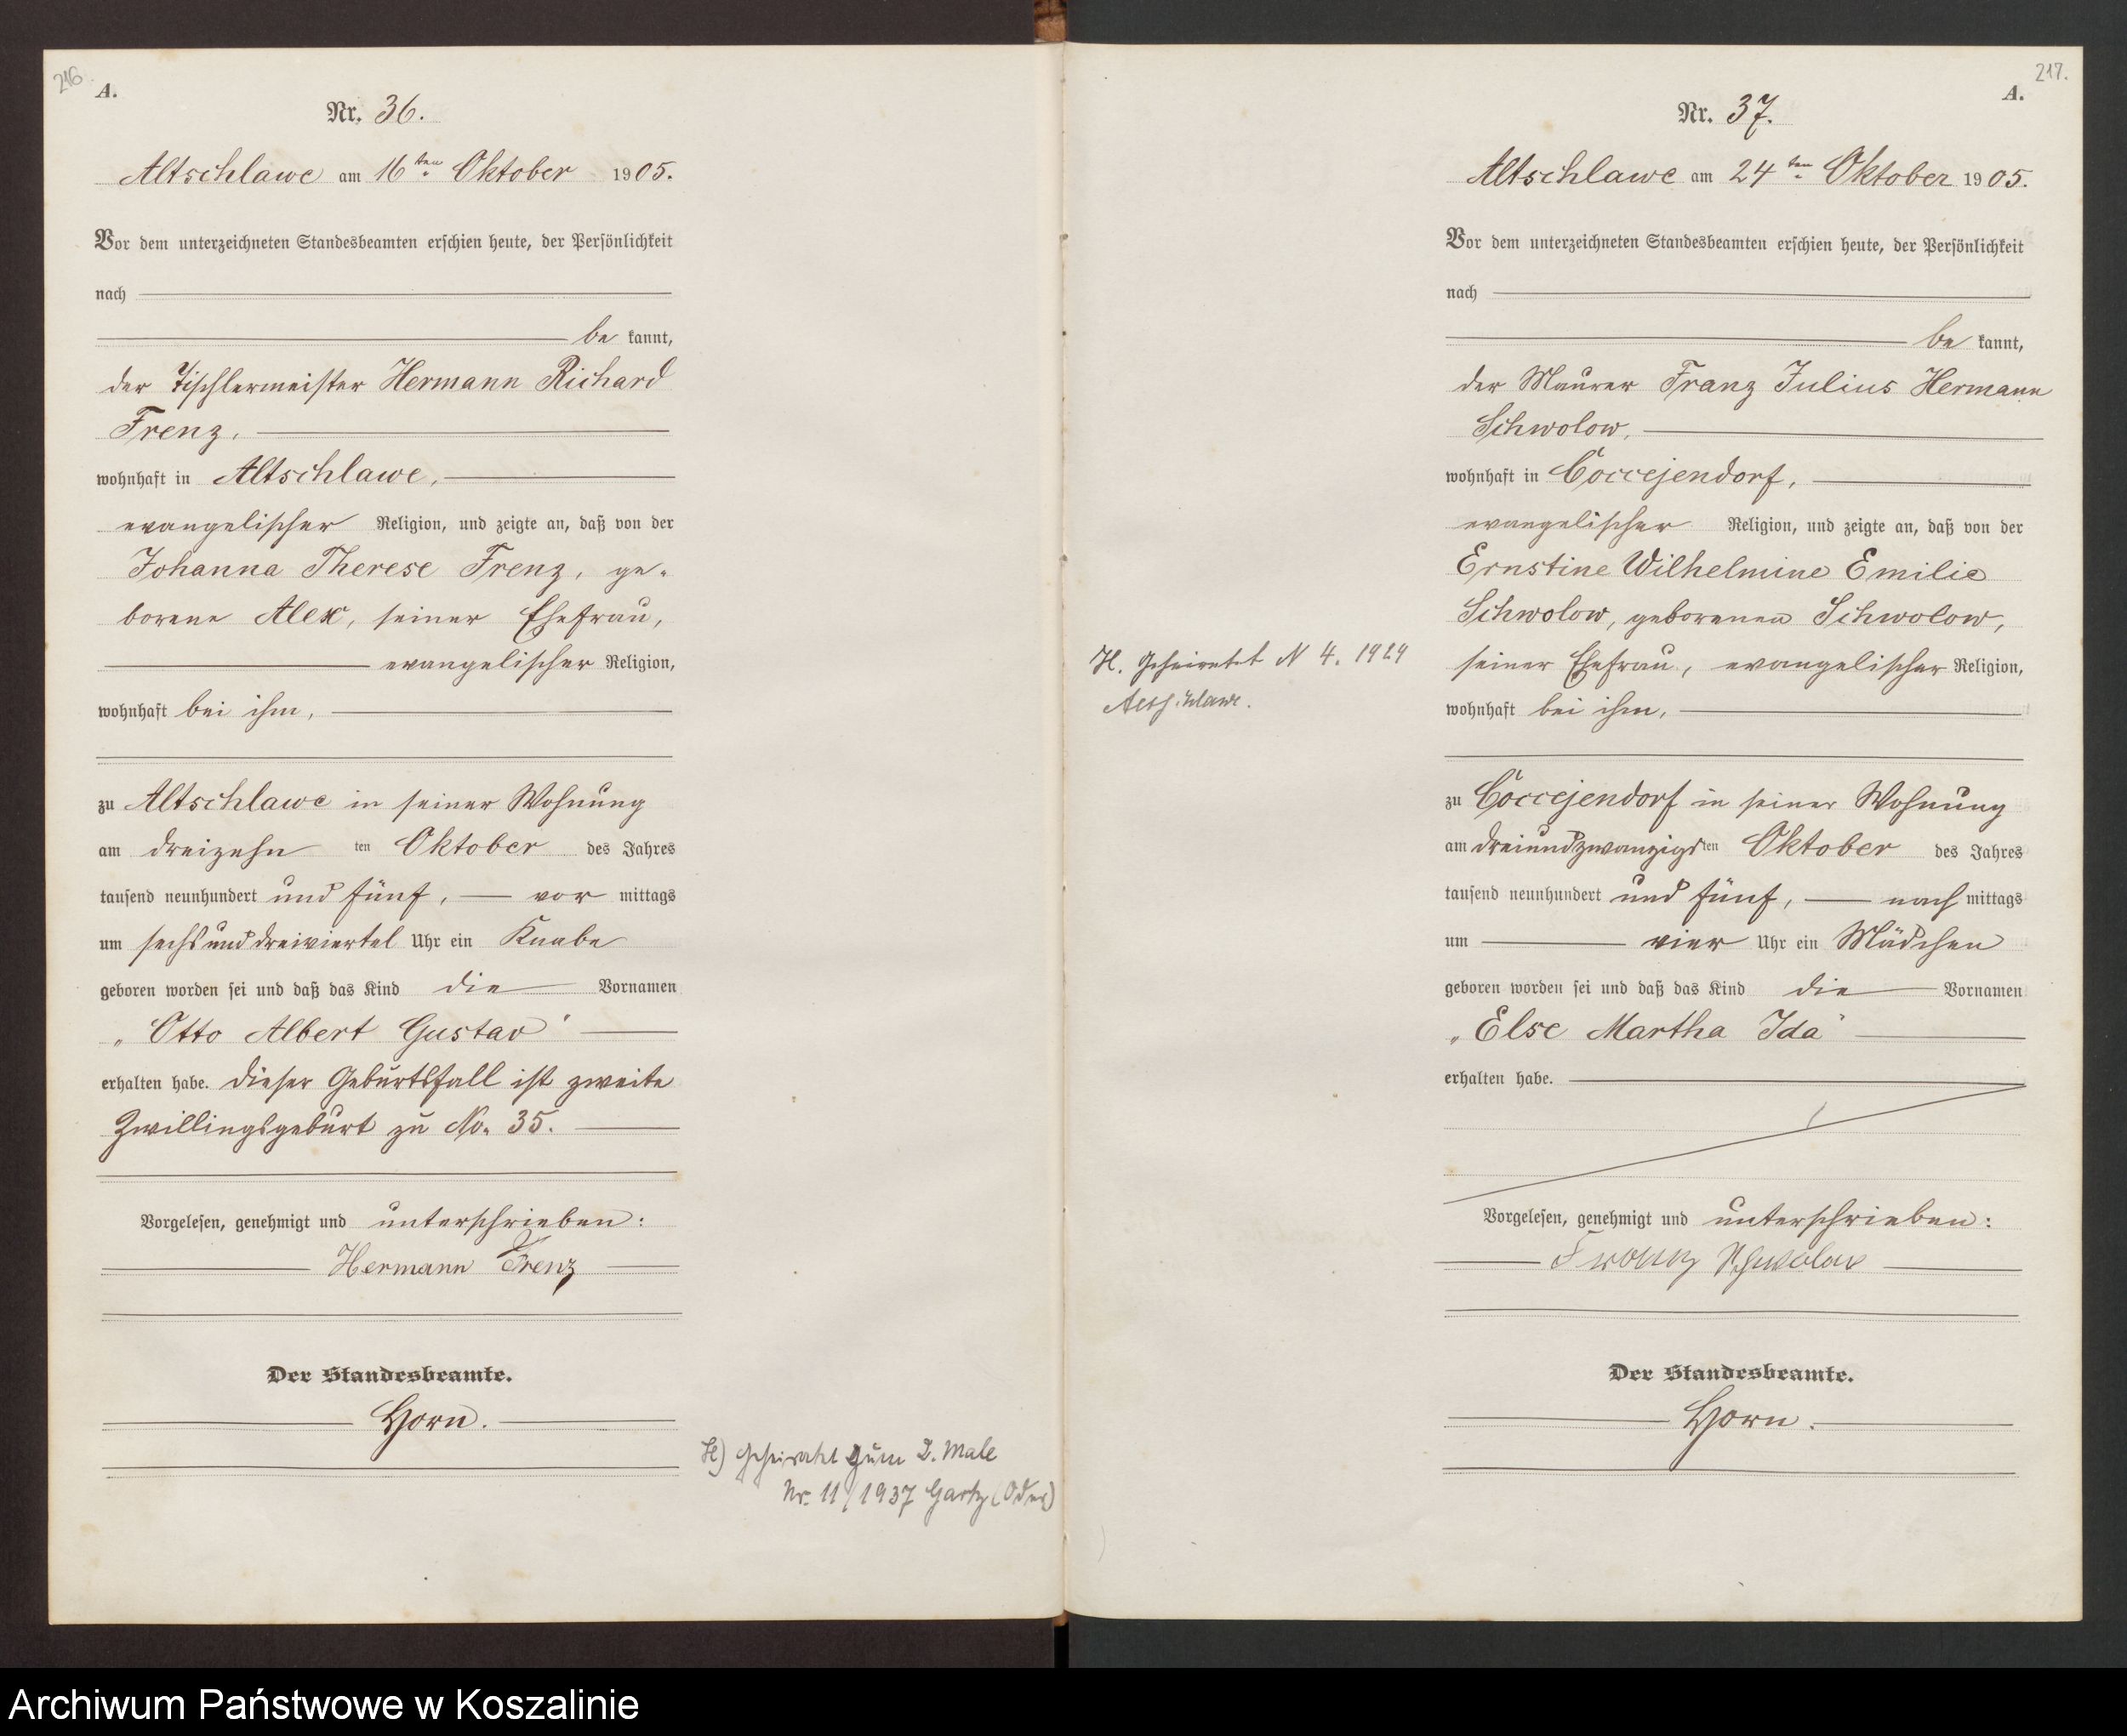 216
A.
Nr. 36.
Altschlawe am 16ten Oktober 1905.
Vor dem unterzeichneten Standesbeamten erschien heute, der Persönlichkeit
nach
be kannt,
der Tischlermeister Hermann Richard
Frenz,
wohnhaft in Altschlawe,
evangelischer Religion, und zeigte an, daß von der
Johanna Therese Frenz, ge-
borene Alex, seiner Ehefrau,
evangelischer Religion,
wohnhaft bei ihm,
zu Altschlawe in seiner Wohnung
am dreizehn ten Oktober des Jahres
tausend neunhundert und fünf, vor mittags
um sechs und dreiviertel Uhr ein Knabe
geboren worden sei und daß das Kind die Vornamen
„Otto Albert Gustav"
erhalten habe. Dieser Geburtsfall ist zweite
Zwillingsgeburt zu No. 35.
Vorgelesen, genehmigt und unterschrieben:
Hermann Frenz
Der Standesbeamte.
Horn.
H) Geheiratet zum 2. Male
Nr. 11/1937 Gartz (Oder)
217.
A.
Nr. 37.
Altschlawe am 24ten Oktober 1905.
Vor dem unterzeichneten Standesbeamten erschien heute, der Persönlichkeit
nach
be kannt,
der Maurer Franz Julius Hermann
Schwolow,
wohnhaft in Coccejendorf,
evangelischer Religion, und zeigte an, daß von der
Ernstine Wilhelmine Emilie
Schwolow, geborenen Schwolow,
H. Geheiratet N 4. 1929
Altschlawe.
seiner Ehefrau, evangelischer Religion,
wohnhaft bei ihm,
zu Coccejendorf in seiner Wohnung
am dreiundzwanzigsten Oktober des Jahres
tausend neunhundert und fünf, nach mittags
um vier Uhr ein Mädchen
geboren worden sei und daß das Kind die Vornamen
„Else Martha Ida"
erhalten habe.
Vorgelesen, genehmigt und unterschrieben:
Franz Schwolow
Der Standesbeamte.
Horn.
Archiwum Państwowe w Koszalinie